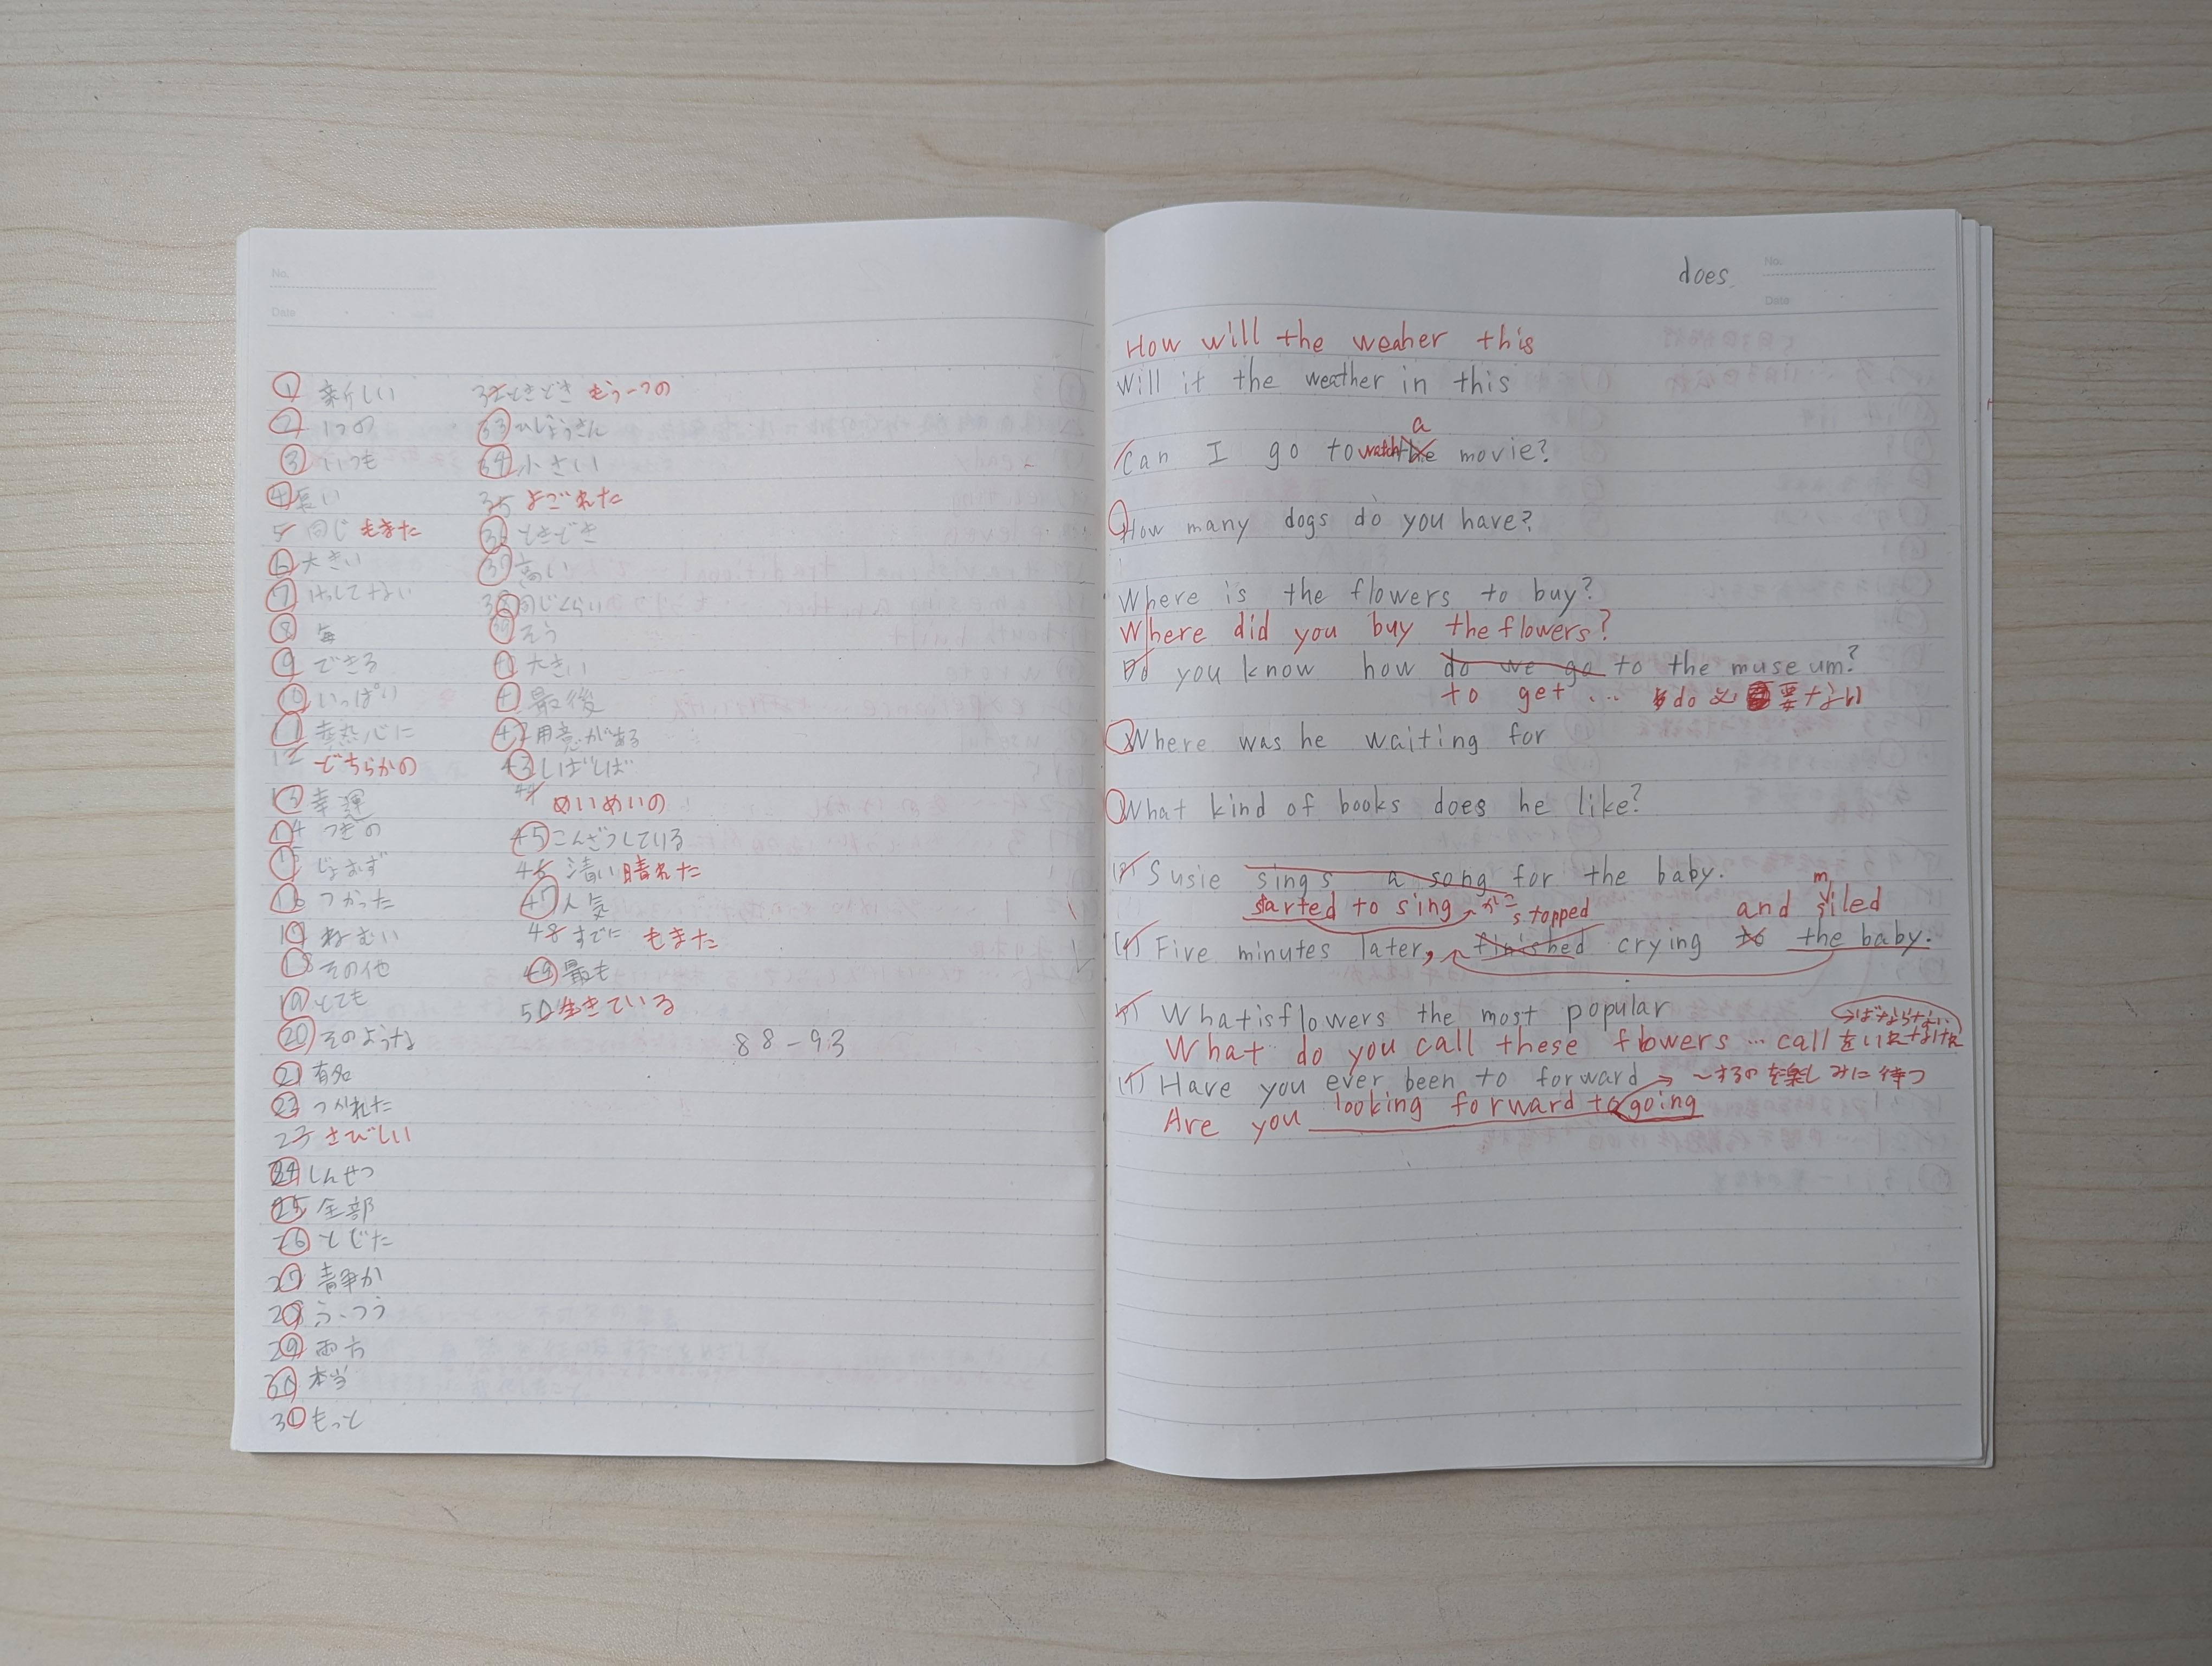 No.
Date
① 新しい
② 1つの
③ いつも
④ 長い
5 同じ もまた
⑥ 大きい
⑦ けっしてない
⑧ 毎
⑨ できる
⑩ いっぱい
⑪ 熱心に
12 どちらかの
⑬ 幸運
⑭ つぎの
⑮ じょおず
⑯ つかった
⑰ ねむい
⑱ その他
⑲ とても
⑳ そのような
㉑ 有名
22 つかれた
23 さびしい
㉔ しんせつ
㉕ 全部
㉖ とじた
㉗ 静か
㉘ ふつう
㉙ 両方
㉚ 本当
㉛ もっと
32 ときどき もう一つの
㉝ ひじょうさん
㉞ 小さい
35 よごれた
㊱ ときどき
㊲ 高い
㊳ 同じくらい
㊴ そう
大きい
最後
㊷ 用意がある
㊸ しばしば
44 めいめいの
㊺ こんざつしている
46 清い 晴れた
㊼ 人気
48 すでに もまた
㊾ 最も
50 生きている
88-93
does
No.
Date
How will the weaher this
Will it the weather in this
a
Can I go to watch the movie?
How many dogs do you have?
Where is the flowers to buy?
Where did you buy the flowers?
Do you know how do we go to the museum?
to get ... do 必要ない
Where was he waiting for
What kind of books does he like?
Susie sings a song for the baby.
started to sing
stopped and smiled
Five minutes later, finished crying to the baby.
What is flowers the most popular
What do you call these flowers … call をいれなければならない
Have you ever been to forward → ~するのを楽しみに待つ
Are you looking forward to going